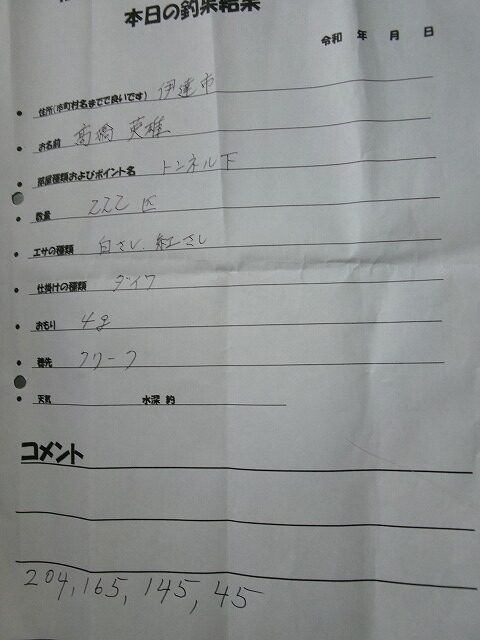 本日の釣果結果
令和 年 月 日
住所(市町村名までで良いです) 伊達市
お名前 高橋 英雄
部屋種類およびポイント名 トンネル下
数量 222 匹
エサの種類 白さし、紅さし
仕掛けの種類 ダイワ
おもり 4g
穂先 クリーフ
天気 水深 約
コメント
204, 165, 145, 45